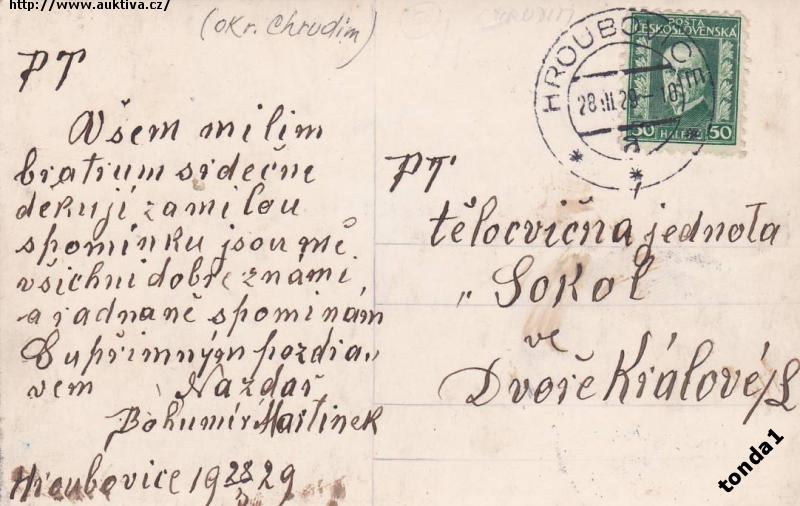 http://www.auktiva.cz/
(okr. Chrudim)
PT
Všem milim
bratrum srdečne
děkuji za milou
spominku jsou mě
všichni dobře známi
a radna ně spominám
S upřimným pozdra„
vem Nazdar
Bohumír Martinek
Hroubovice 19 28/3 29
POŠTA
ČESKOSLOVENSKÁ
50 HALÉŘŮ 50
HROUBOVIC
28.III.29-10
PT
tělocvična jednota
„Sokol
ve
Dvoře Králové/L
tonda1